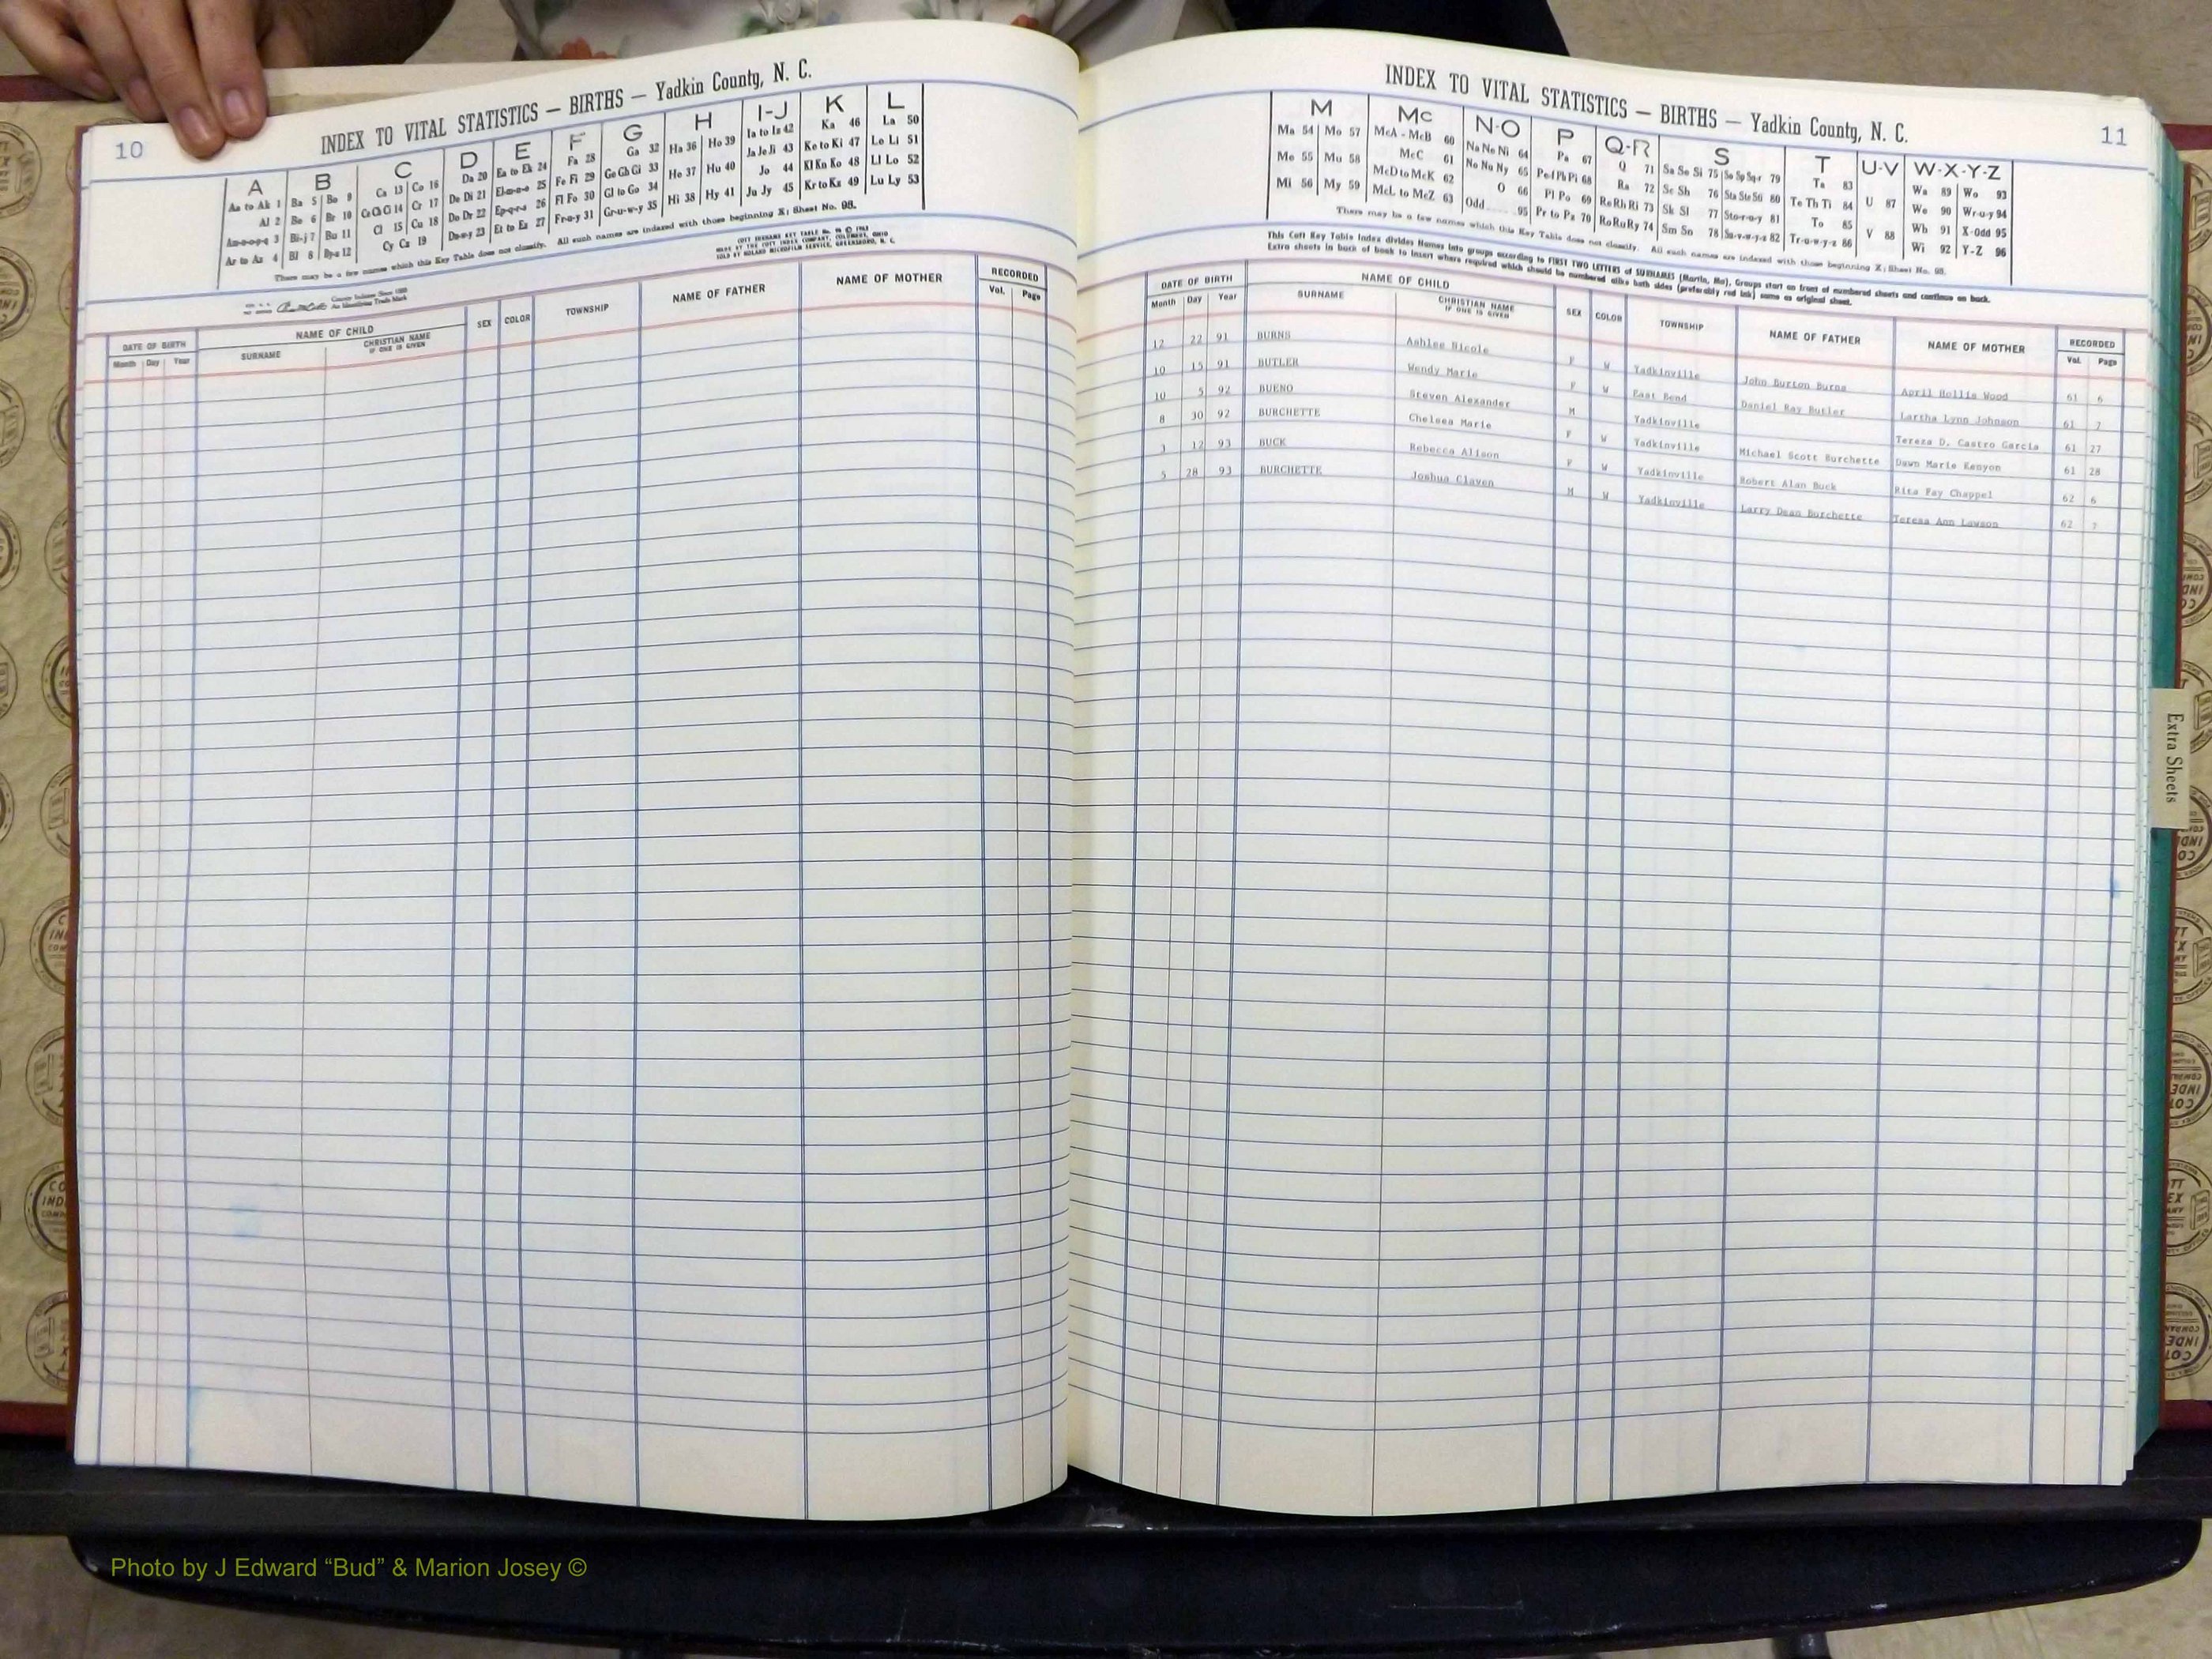 10
INDEX TO VITAL STATISTICS — BIRTHS — Yadkin County, N. C.
A B C D E F G H I-J K L
Aa to Ak 1 Ba 5 Bo 9 Ca 13 Co 16 Da 20 Ea to Ek 24 Fa 28 Ga 32 Ha 36 Ho 39 Ia to Iz 42 Ka 46 La 50
Al 2 Be 6 Br 10 Ce Ch Ci 14 Cr 17 De Di 21 El-m-n-o 25 Fe Fi 29 Ge Gh Gi 33 He 37 Hu 40 Ja Je Ji 43 Ke to Ki 47 Le Li 51
Am-n-o-p-q 3 Bi-j 7 Bu 11 Cl 15 Cu 18 Do Dr 22 Ep-q-r-s 26 Fl Fo 30 Gl to Go 34 Hi 38 Hy 41 Jo 44 Kl Kn Ko 48 Ll Lo 52
Ar to Az 4 Bl 8 By-z 12 Cy Cz 19 Du-w-y 23 Et to Ez 27 Fr-u-y 31 Gr-u-w-y 35 Ju Jy 45 Kr to Kz 49 Lu Ly 53
There may be a few names which this Key Table does not classify. All such names are indexed with those beginning X; Sheet No. 98.
DATE OF BIRTH NAME OF CHILD SEX COLOR TOWNSHIP NAME OF FATHER NAME OF MOTHER RECORDED
Month Day Year SURNAME CHRISTIAN NAME IF ONE IS GIVEN Vol. Page
11
INDEX TO VITAL STATISTICS — BIRTHS — Yadkin County, N. C.
M Mc N-O P Q-R S T U-V W-X-Y-Z
Ma 54 Mo 57 McA - McB 60 Na Ne Ni 64 Pa 67 Q 71 Sa Se Si 75 So Sp Sq-r 79 Ta 83 U 87 Wa 89 Wo 93
Me 55 Mu 58 McC 61 No Nu Ny 65 Pe-f Ph Pi 68 Ra 72 Sc Sh 76 Sta Ste Sti 80 Te Th Ti 84 V 88 We 90 Wr-u-y 94
Mi 56 My 59 McD to McK 62 O 66 Pl Po 69 Re Rh Ri 73 Sk Sl 77 Sto-r-u-y 81 To 85 Wh 91 X-Odd 95
McL to McZ 63 Odd 95 Pr to Pz 70 Ro Ru Ry 74 Sm Sn 78 Su-v-w-y-z 82 Tr-u-w-y-z 86 Wi 92 Y-Z 96
There may be a few names which this Key Table does not classify. All such names are indexed with those beginning X; Sheet No. 98.
This Cott Key Table Index divides Names into groups according to FIRST TWO LETTERS of SURNAMES (Martin, Ma). Groups start on front of numbered sheets and continue on back.
Extra sheets in back of book to insert where required which should be numbered alike both sides (preferably red ink) same as original sheet.
DATE OF BIRTH NAME OF CHILD SEX COLOR TOWNSHIP NAME OF FATHER NAME OF MOTHER RECORDED
Month Day Year SURNAME CHRISTIAN NAME IF ONE IS GIVEN Vol. Page
12 22 91 BURNS Ashlee Nicole F W Yadkinville John Burton Burns April Hollis Wood 61 6
10 15 91 BUTLER Wendy Marie F W East Bend Daniel Ray Butler Lartha Lynn Johnson 61 7
10 5 92 BUENO Steven Alexander M Yadkinville Tereza D. Castro Garcia 61 27
8 30 92 BURCHETTE Chelsea Marie F W Yadkinville Michael Scott Burchette Dawn Marie Kenyon 61 28
3 12 93 BUCK Rebecca Alison F W Yadkinville Robert Alan Buck Rita Fay Chappel 62 6
5 28 93 BURCHETTE Joshua Claven M W Yadkinville Larry Dean Burchette Teresa Ann Lawson 62 7
Extra Sheets
Photo by J Edward “Bud” & Marion Josey ©